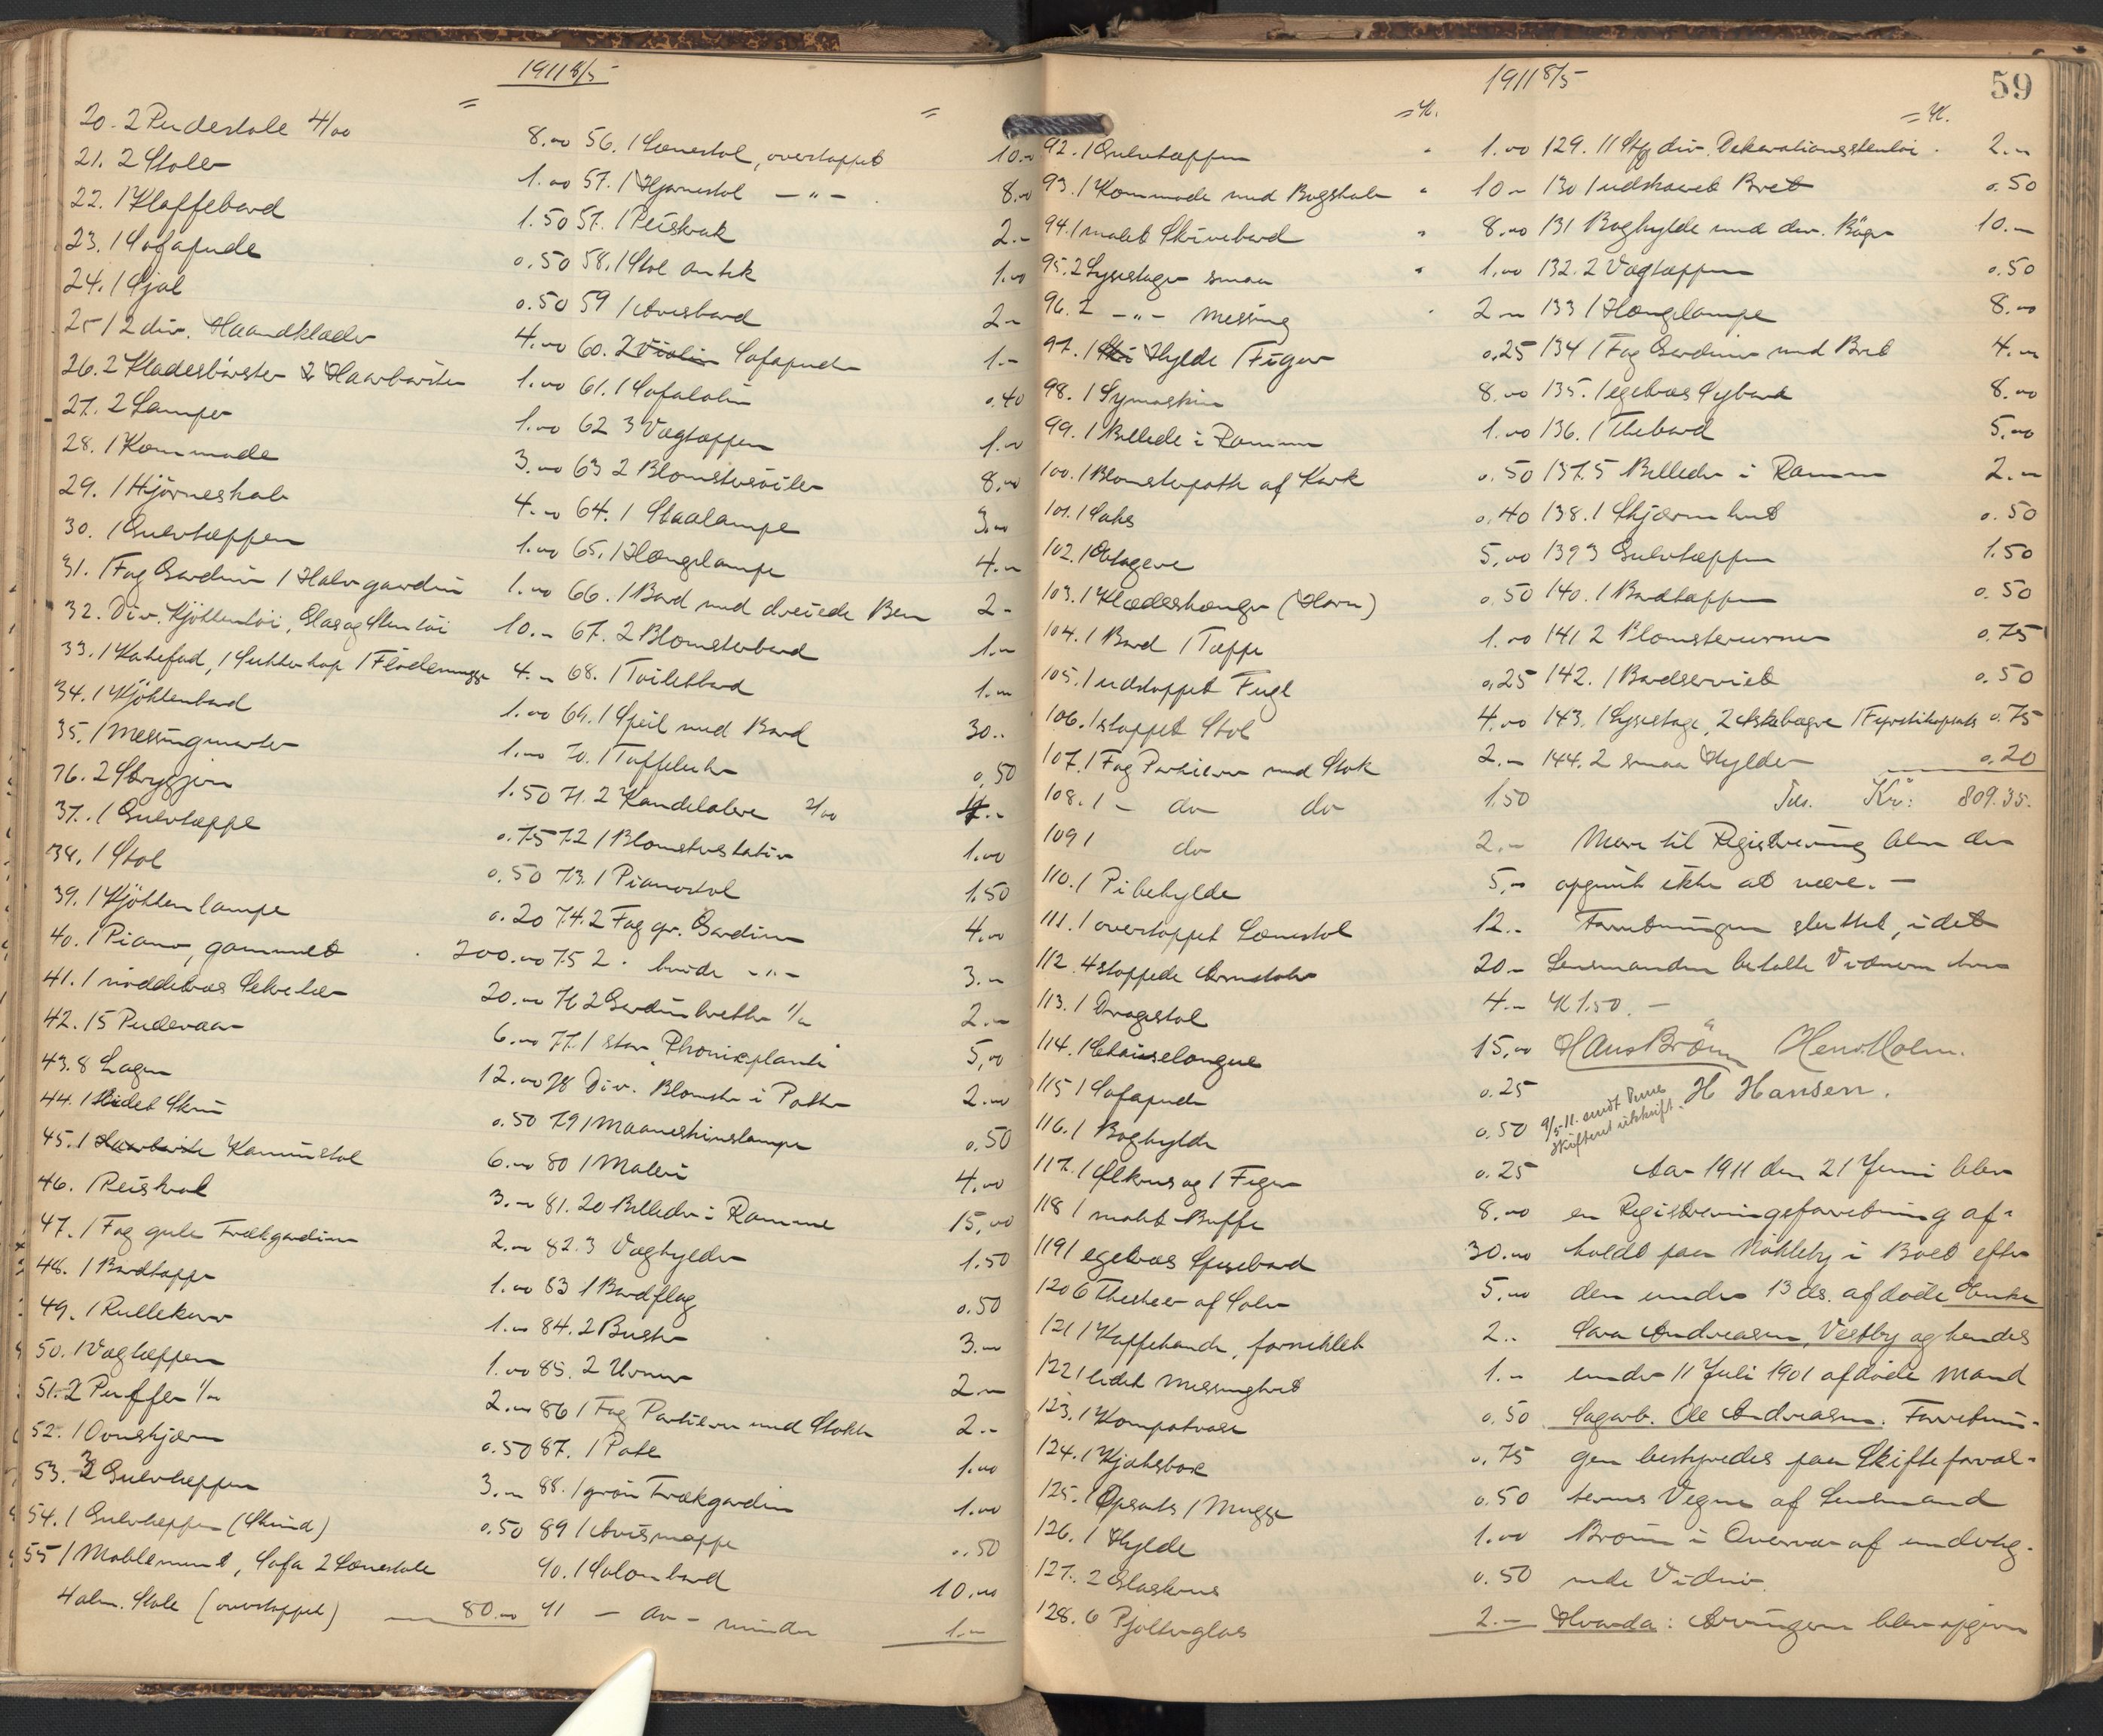 1911 8/5
20. 2 Pudestole 4/00 8.00
21. 2 Stoler 1.00
22. 1 Klaffebord 1.50
23. 1 Sofapude 0.50
24. 1 Sjal 0.50
25 12 div. Haandklæder 4.00
26. 2 Klædesbörster 2 Haarbörster 1.00
27. 2 Lamper 1.00
28. 1 Kommode 3.00
29. 1 Hjörneskab 4.00
30. 1 Gulvtæppe 1.00
31. 1 Fag Gardiner 1 Halvgardin 1.00
32. Div. Kjökkentöi, Glas og Stentöi 10.-
33. 1 Kagefad, 1 Sukkerkop 1 Flödemugge 4.-
34. 1 Kjökkenbord 1.00
35. 1 Messingmorter 1.00
36. 2 Strygjern 1.50
37. 1 Gulvtæppe 0.75
38. 1 Stol 0.50
39. 1 Kjökkenlampe 0.20
40. 1 Piano, gammelt 200.00
41. 1 nöddetræs Sekretær 20.00
42. 15 Pudevaar 6.00
43. 8 Lagen 12.00
44. 1 lidet Skrin 0.50
45. 1 Haarbörste Kaminstol 6.00
46. 1 Peiskrak 3.-
47. 1 Fag gule Trækgardiner 2.-
48. 1 Bordtæppe 1.00
49. 1 Rullekurv 1.-
50. 1 Vægtæppe 1.00
51. 2 Puffer 1/00 2.-
52. 1 Ovnskjerm 0.50
53. 3 Gulvtæpper 3.-
54. 1 Gulvtæppe (Skind) 0.50
55 1 Moblement, Sofa 2 Lænestole
4 alm. Stole (overstoppet) 80.-
56. 1 Lænestol, overstoppet 10.-
57. 1 Hjørnestol -"- 8.00
57. 1 Peiskrak 2.-
58. 1 Stol antik 1.00
59 1 Avisbord 2.-
60. 2 Violin Sofapuder 1.-
61. 1 Sofaløber 0.40
62 3 Vægtæpper 1.00
63 2 Blomstersöiler 8.00
64. 1 Staalampe 3.00
65. 1 Hængelampe 4.-
66. 1 Bord med dreiede Ben 2-
67. 2 Blomsterbord 1.-
68. 1 Toiletbord 1.-
69. 1 Speil med Bord 30..
70. 1 Taffeluhr 0.50
71. 2 Kandelabre 2/00 4.-
72 1 Blomsterstativ 1.00
73. 1 Pianostol 1.50
74. 2 Fag gr. Gardiner 4.00
75 2 . hvide -"- 3.-
76 2 Gardinbretter 1/00 2.-
77. 1 stor "Phönixplante" 5.00
78 Div. Blomster i Potter 2.00
79 1 Maaneskinslampe 0.50
80 1 Maleri 4.00
81. 20 Billeder i Ramme 15.00
82. 3 Væghylder 1.50
83 1 Bordflag 0.50
84. 2 Buster 3.-
85. 2 Urner 2.-
86 1 Fag Portierer med Stokke 2.-
87. 1 Pote 1.00
88. 1 grön Trækgardin 1.00
89 1 Avismappe 0.50
90. 1 Salonbord 10.00
91 - do - mindre 1.-
1911 8/5
59
= Kr.
= Kr.
92. 1 Gulvtæppe 1.00
93. 1 Kommode med Bogskab 10-
94. 1 malet Skrivebord 8.00
95. 2 Lysestager smaa 1.00
96. 2 -"- Messing 2-
97. 1 Hylde 1 Figur 0.25
98. 1 Symaskin 8.00
99. 1 Billede i Ramme 1.00
100. 1 Blomsterpotte af Kork 0.50
101. 1 Saks 0.40
102. 1 Etagere 5.00
103. 1 Klædeshænger (Horn) 0.50
104. 1 Bord 1 Tæppe 1.00
105. 1 udstoppet Fugl 0.25
106. 1 stoppet Stol 4.00
107. 1 Fag Portierer med Stok 2.-
108. 1 - do do 1.50
109 1 do 2.-
110. 1 Pibehylde 5.-
111. 1 overstoppet Lænestol 12..
112. 4 stoppede Armstoler 20-
113. 1 Dragestol 4.-
114. 1 Chaiselongue 15.00
115 1 Sofapude 0.25
116. 1 Boghylde 0.50
117. 1 Ølkrus og 1 Figur 0.25
118 1 malet Buffe 8.00
119 1 egetræs Spisebord 30.00
120 6 Theskeer af Sølv 5.00
121 1 Kaffekande, forniklet 2..
122 1 lidet Messingbret 1.-
123. 1 Kompotvase 0.50
124. 1 Kjæksbox 0.75
125. 1 Opsats 1 Mugge 0.50
126. 1 Hylde 1.00
127. 2 Glaskrus 0.50
128. 6 Pjolterglas 2.-
129. 11 Stg div. Dekorationsstentöi 2.-
130 1 udskaaret Bret 0.50
131 Boghylde med div. Böger 10.-
132. 2 Vægtæpper 0.50
133 1 Hængelampe 8.00
134 1 Fag Gardiner med Bret 4.-
135. 1 egetræs Sybord 8.00
136. 1 Thebord 5.00
137. 5 Billeder i Ramme 2.-
138. 1 Skjærmbret 0.50
139 3 Gulvtæpper 1.50
140. 1 Bordtæppe 0.50
141 2 Blomsterurner 0.75
142. 1 Bordserviet 0.50
143. 1 Lysestage, 2 Askebægre 1 Fyrstikopsats 0.75
144. 2 smaa Hylder 0.20
Tils. Kr: 809.35.
Mere til Registrering blev der
opgivet ikke at være. -
Forretningen sluttet, idet
Lensmanden betalte Vidnerne hver
Kr 1.50. -
Hans Bröin Henr. Holm.
H Hansen.
9/5-11. sendt
Skifteret utskrift.
Aar 1911 den 21 Juni blev
en Registreringsforretning af-
holdt paa Nökleby i Boet efter
den under 13 ds. afdöde Enke
Sara Andreasen, Vestby og hendes
under 11 Juli 1901 afdöde Mand
Sagarb. Ole Andreasen. Forretnin-
gen bestyredes paa Skifteforval-
terens Vegne af Lensmand
Bröin i Overvær af undteg-
nede Vidner.
Hvorda: Arvingerne blev opgivne